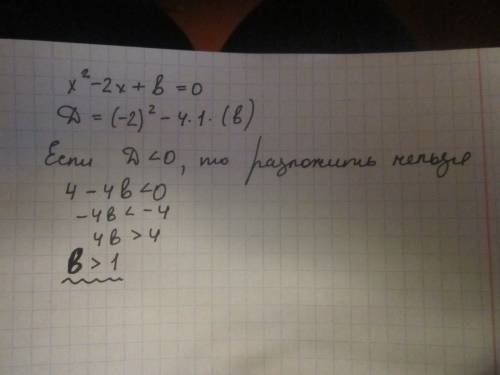 x² - 2x + в = 0
Д = (-2)² - 4·1·(в)
Если Д < 0, то разложить нельзя
4 - 4в < 0
-4в < -4
4в > 4
в > 1